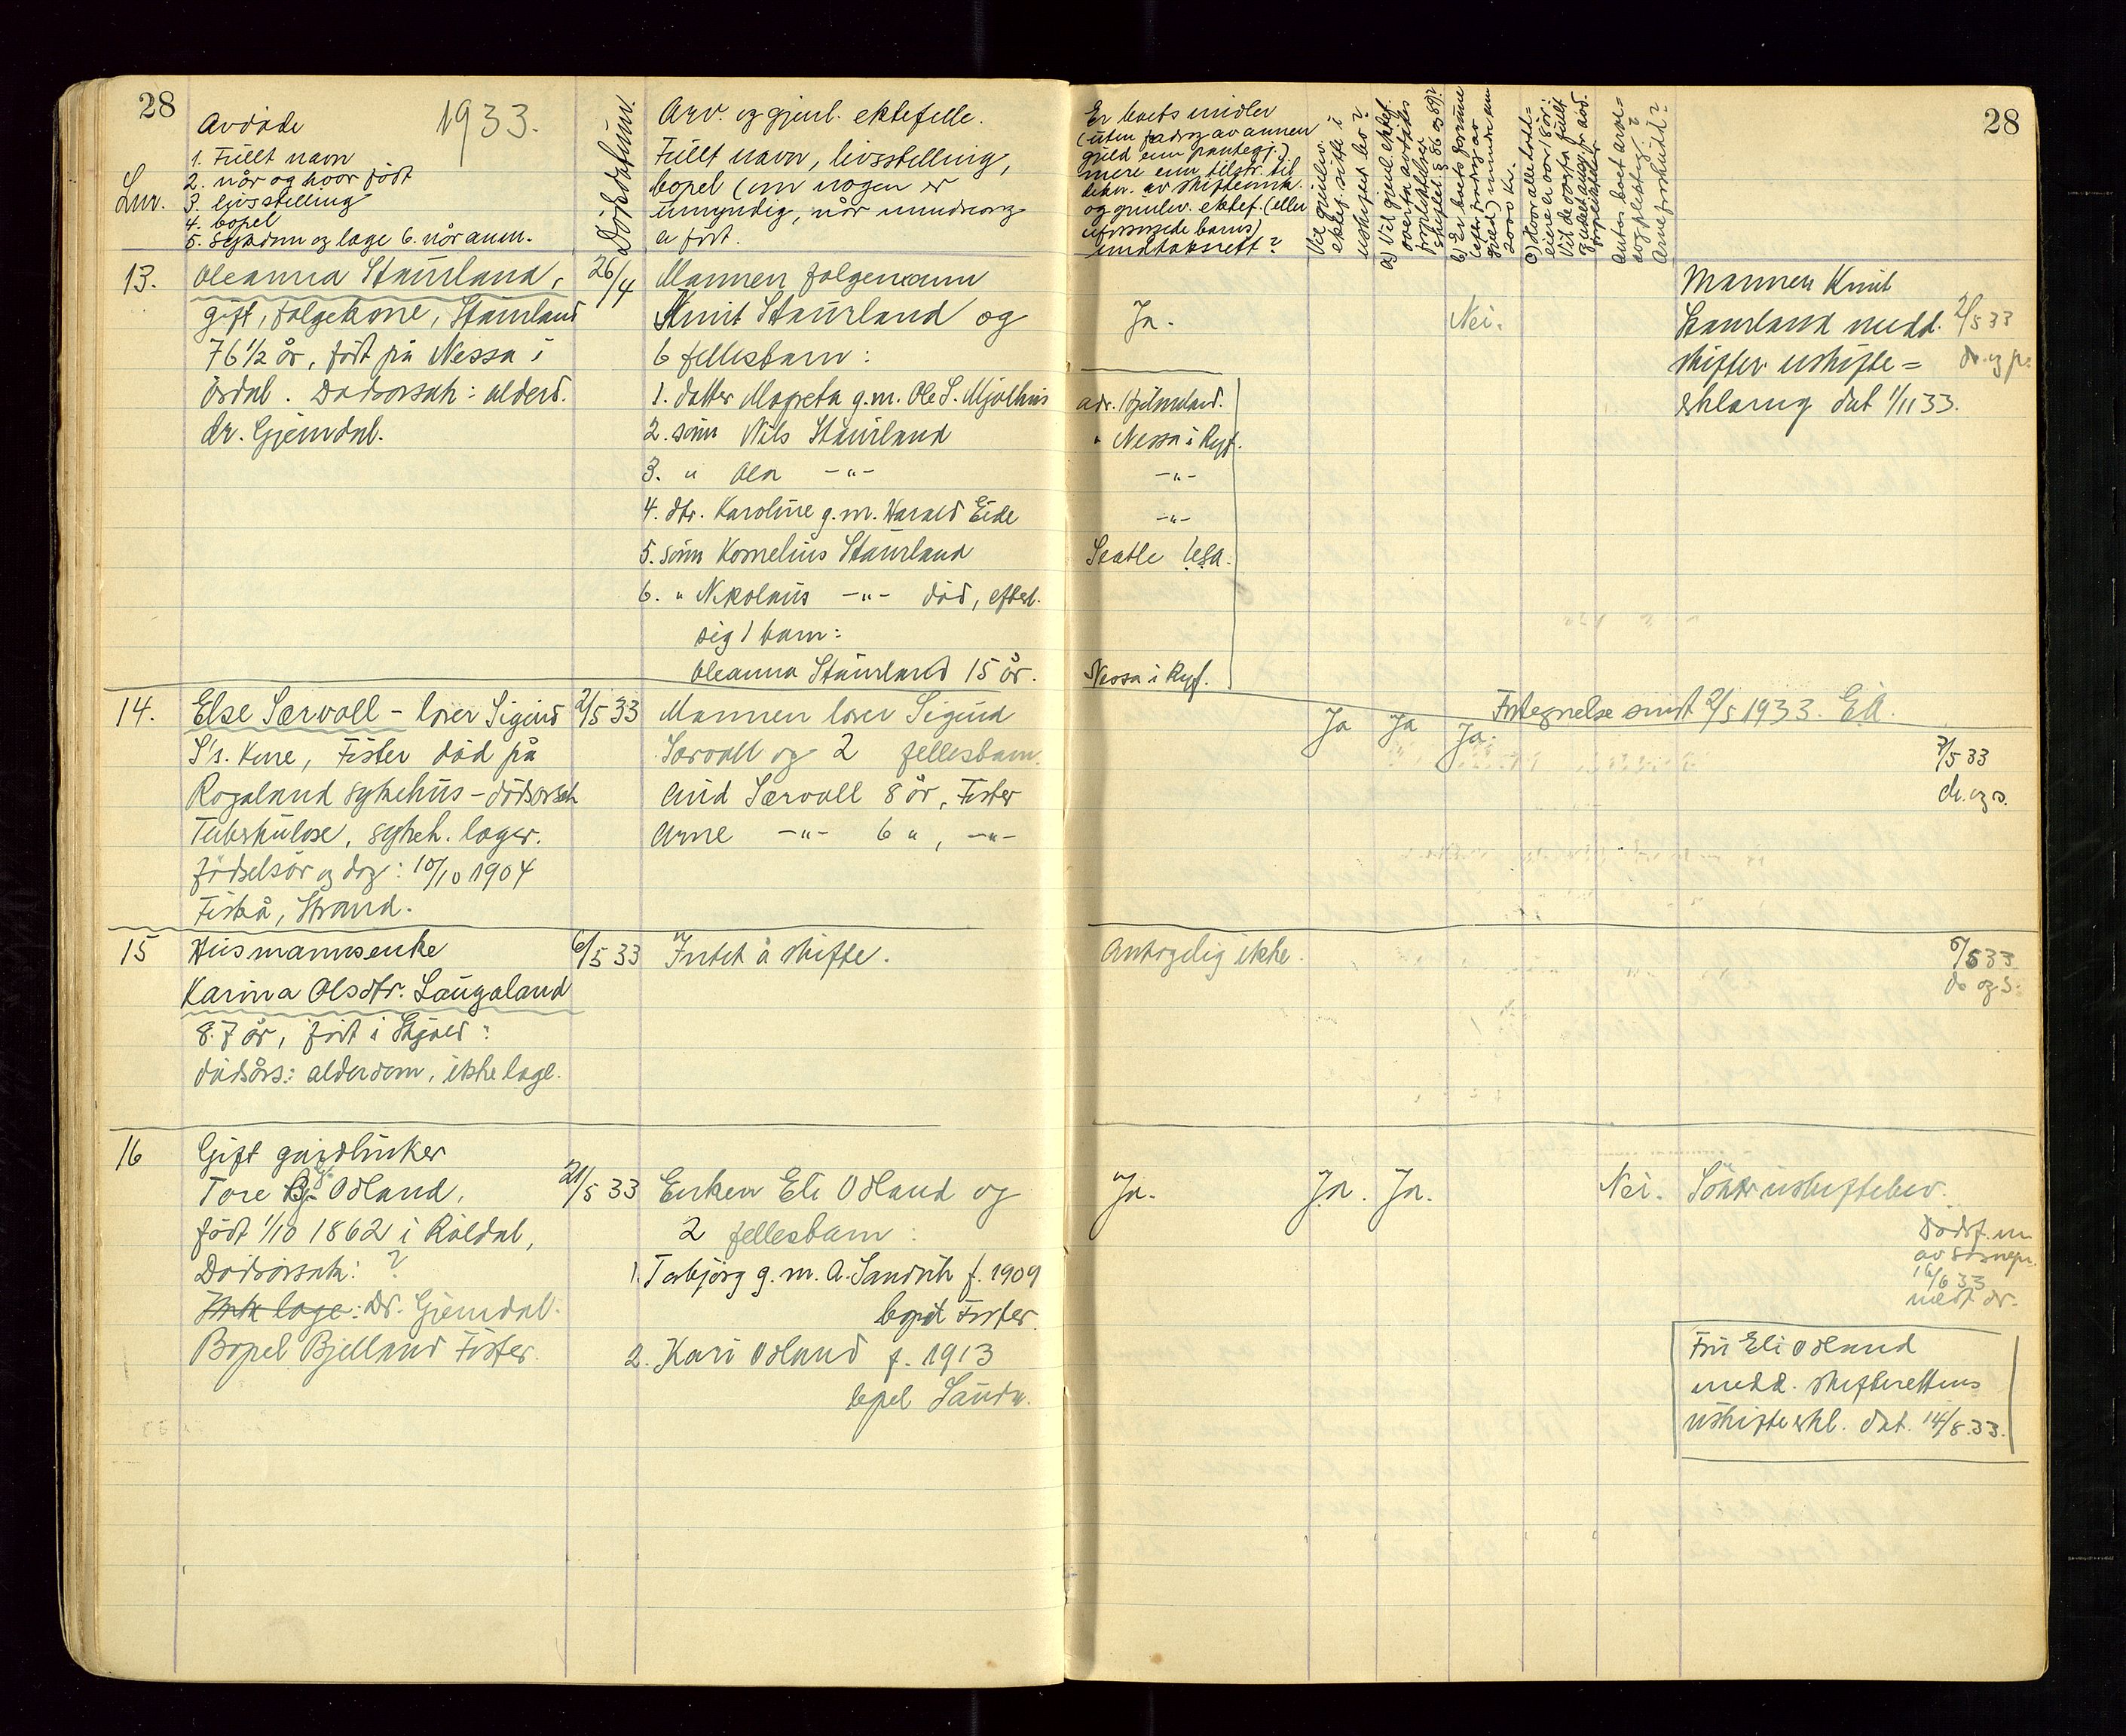 28
1933.
Avdøde
1. Fullt navn
2. når og hvor født
Lnr.
3. livsstilling
4. bopel
5. sykdom og læge 6. når anm.
Dødsdatum.
Arv. og gjenl. ektefelle.
Fullt navn, livsstilling,
bopel (om nogen er
umyndig, når
er født.
13.
Oleanna Staurland,
gift, folgekone, Staurland
76 1/2 år, født på Nessa i
Årdal. Dødsorsak: alderd.
dr. Gjemdal.
26/4
Mannen folgemann
Knut Staurland og
6 fellesbarn:
1. datter Magreta g.m. Ole S. Mjølhus
2. sønn Nils Staurland
3. " Ola -"-
4. dtr. Karoline g.m. Harald Eide
5. sønn Kornelius Staurland
6. " Nikolaus -"- død, efterl.
sig 1 barn:
Oleanna Staurland 15 år.
14.
Else Særvoll - lærer Sigurd
S's. kone, Fister død på
Rogaland sykehus - dødsorsak
Tuberkulose, sykeh. læger.
fødselsår og dag: 10/10 1904
Fiskå, Strand.
2/5 33
Mannen lærer Sigurd
Særvoll og 2 fellesbarn
Aud Særvoll 8 år, Fister
Arne -"- 6 ", -"-
15
Husmannsenke
Karina Olsdtr. Laugaland
87 år, født i Skjold:
dødsårs: alderdom, ikke læge.
6/5 33
Intet å skifte.
16
Gift gårdbruker
Tore Odland,
født 1/10 1862 i Røldal,
Dødsorsak: ?
læge: Dr. Gjemdal.
Bopel Bjelland Fister.
21/5 33
Enken Eli Odland og
2 fellesbarn:
1. Torbjørg g.m. A. Sandvik f. 1909
bopel Fister.
2. Kari Odland f. 1913
bopel Sauda.
28
Er boets midler
(uten fradrag av annen
gjeld enn pantegj.)
mere enn tilstr. til
dekn. av
og gjenlev. ektef. (eller
uforsørgede barns)
undtaksrett?
Vil gjenlev.
ektef. sitte i
uskiftet bo?
a) Vil gjenl. ektef.
overta avdødes
forpliktelser
skiftel. § 86 og 89?
b) Er boets formue
(efter fradrag av
gjeld) mindre enn
2000 kr.
c) Hvor alle lodd=
eiere er over 18 år:
Vil de overta fullt
Antas boet arve=
avgpliktig?
Arveforskudd?
Ja.
Nei.
Mannen Knut
Staurland medd. 2/5 33
skifter uskifte=
erklæring dat 1/11 33.
adr. Hjelmeland.
" Nessa i Ryf.
-"-
-"-
Seatle Usa.
Nessa i Ryf.
Ja Ja Ja.
Fortegnelse sendt 2/5 1933. EA.
3/5 33
dr. og s.
Antagelig ikke.
6/5 33
dr og s.
Ja.
Ja. Ja.
Nei.
Søker uskiftebev.
Dødsf. m
av
16/6 33
medt dr.
Fru Eli Odland
medd. skifterettens
uskifteerkl. dat. 14/8.33.